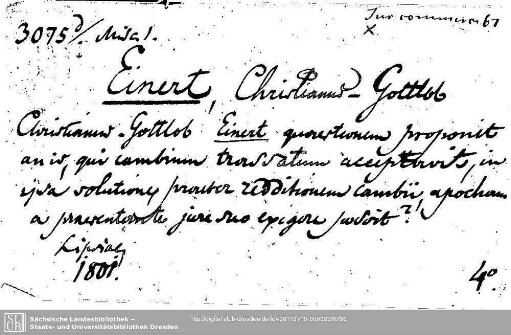 Jus commerc 61
3075ᵈ/. Misc 1. x
Einert, Christianus-Gottlob
Christianus-Gottlob Einert quaestionem proponit
an is, qui cambium trassatum acceptavit, in
ipsa solutione, praeter redditionem cambii, apocham
a praesentante jure suo exigere possit?
Lipsiae,
1801. 4°
Sächsische Landesbibliothek –
Staats- und Universitätsbibliothek Dresden